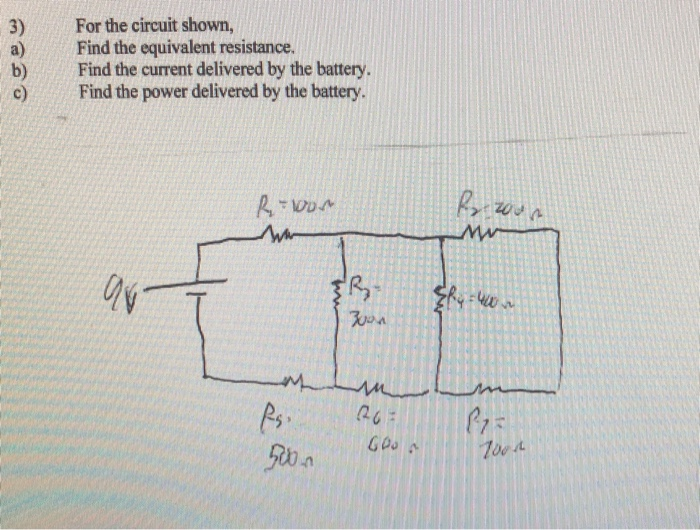 3) For the circuit shown,
a) Find the equivalent resistance.
b) Find the current delivered by the battery.
c) Find the power delivered by the battery.
R₁=100Ω
R₂=200Ω
9V
R₃=
300Ω
R₄=400Ω
R₅=
500Ω
R6=
600Ω
R7=
700Ω